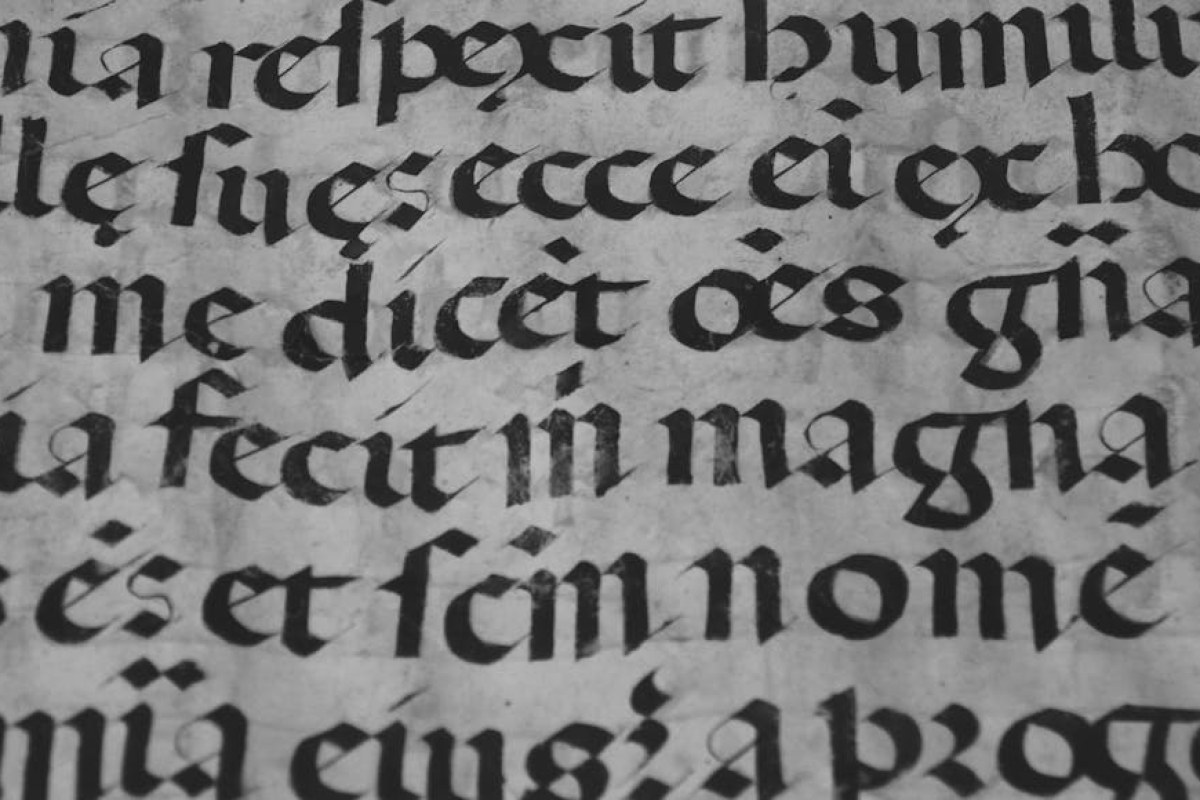 nia reſpexit humili
llę ſuęs ecce ei ex hoc
me dicēt oēs gn̄a
ia fecit m̄ magna
ēs et ſcm̄ nomē
mīa eius a proge